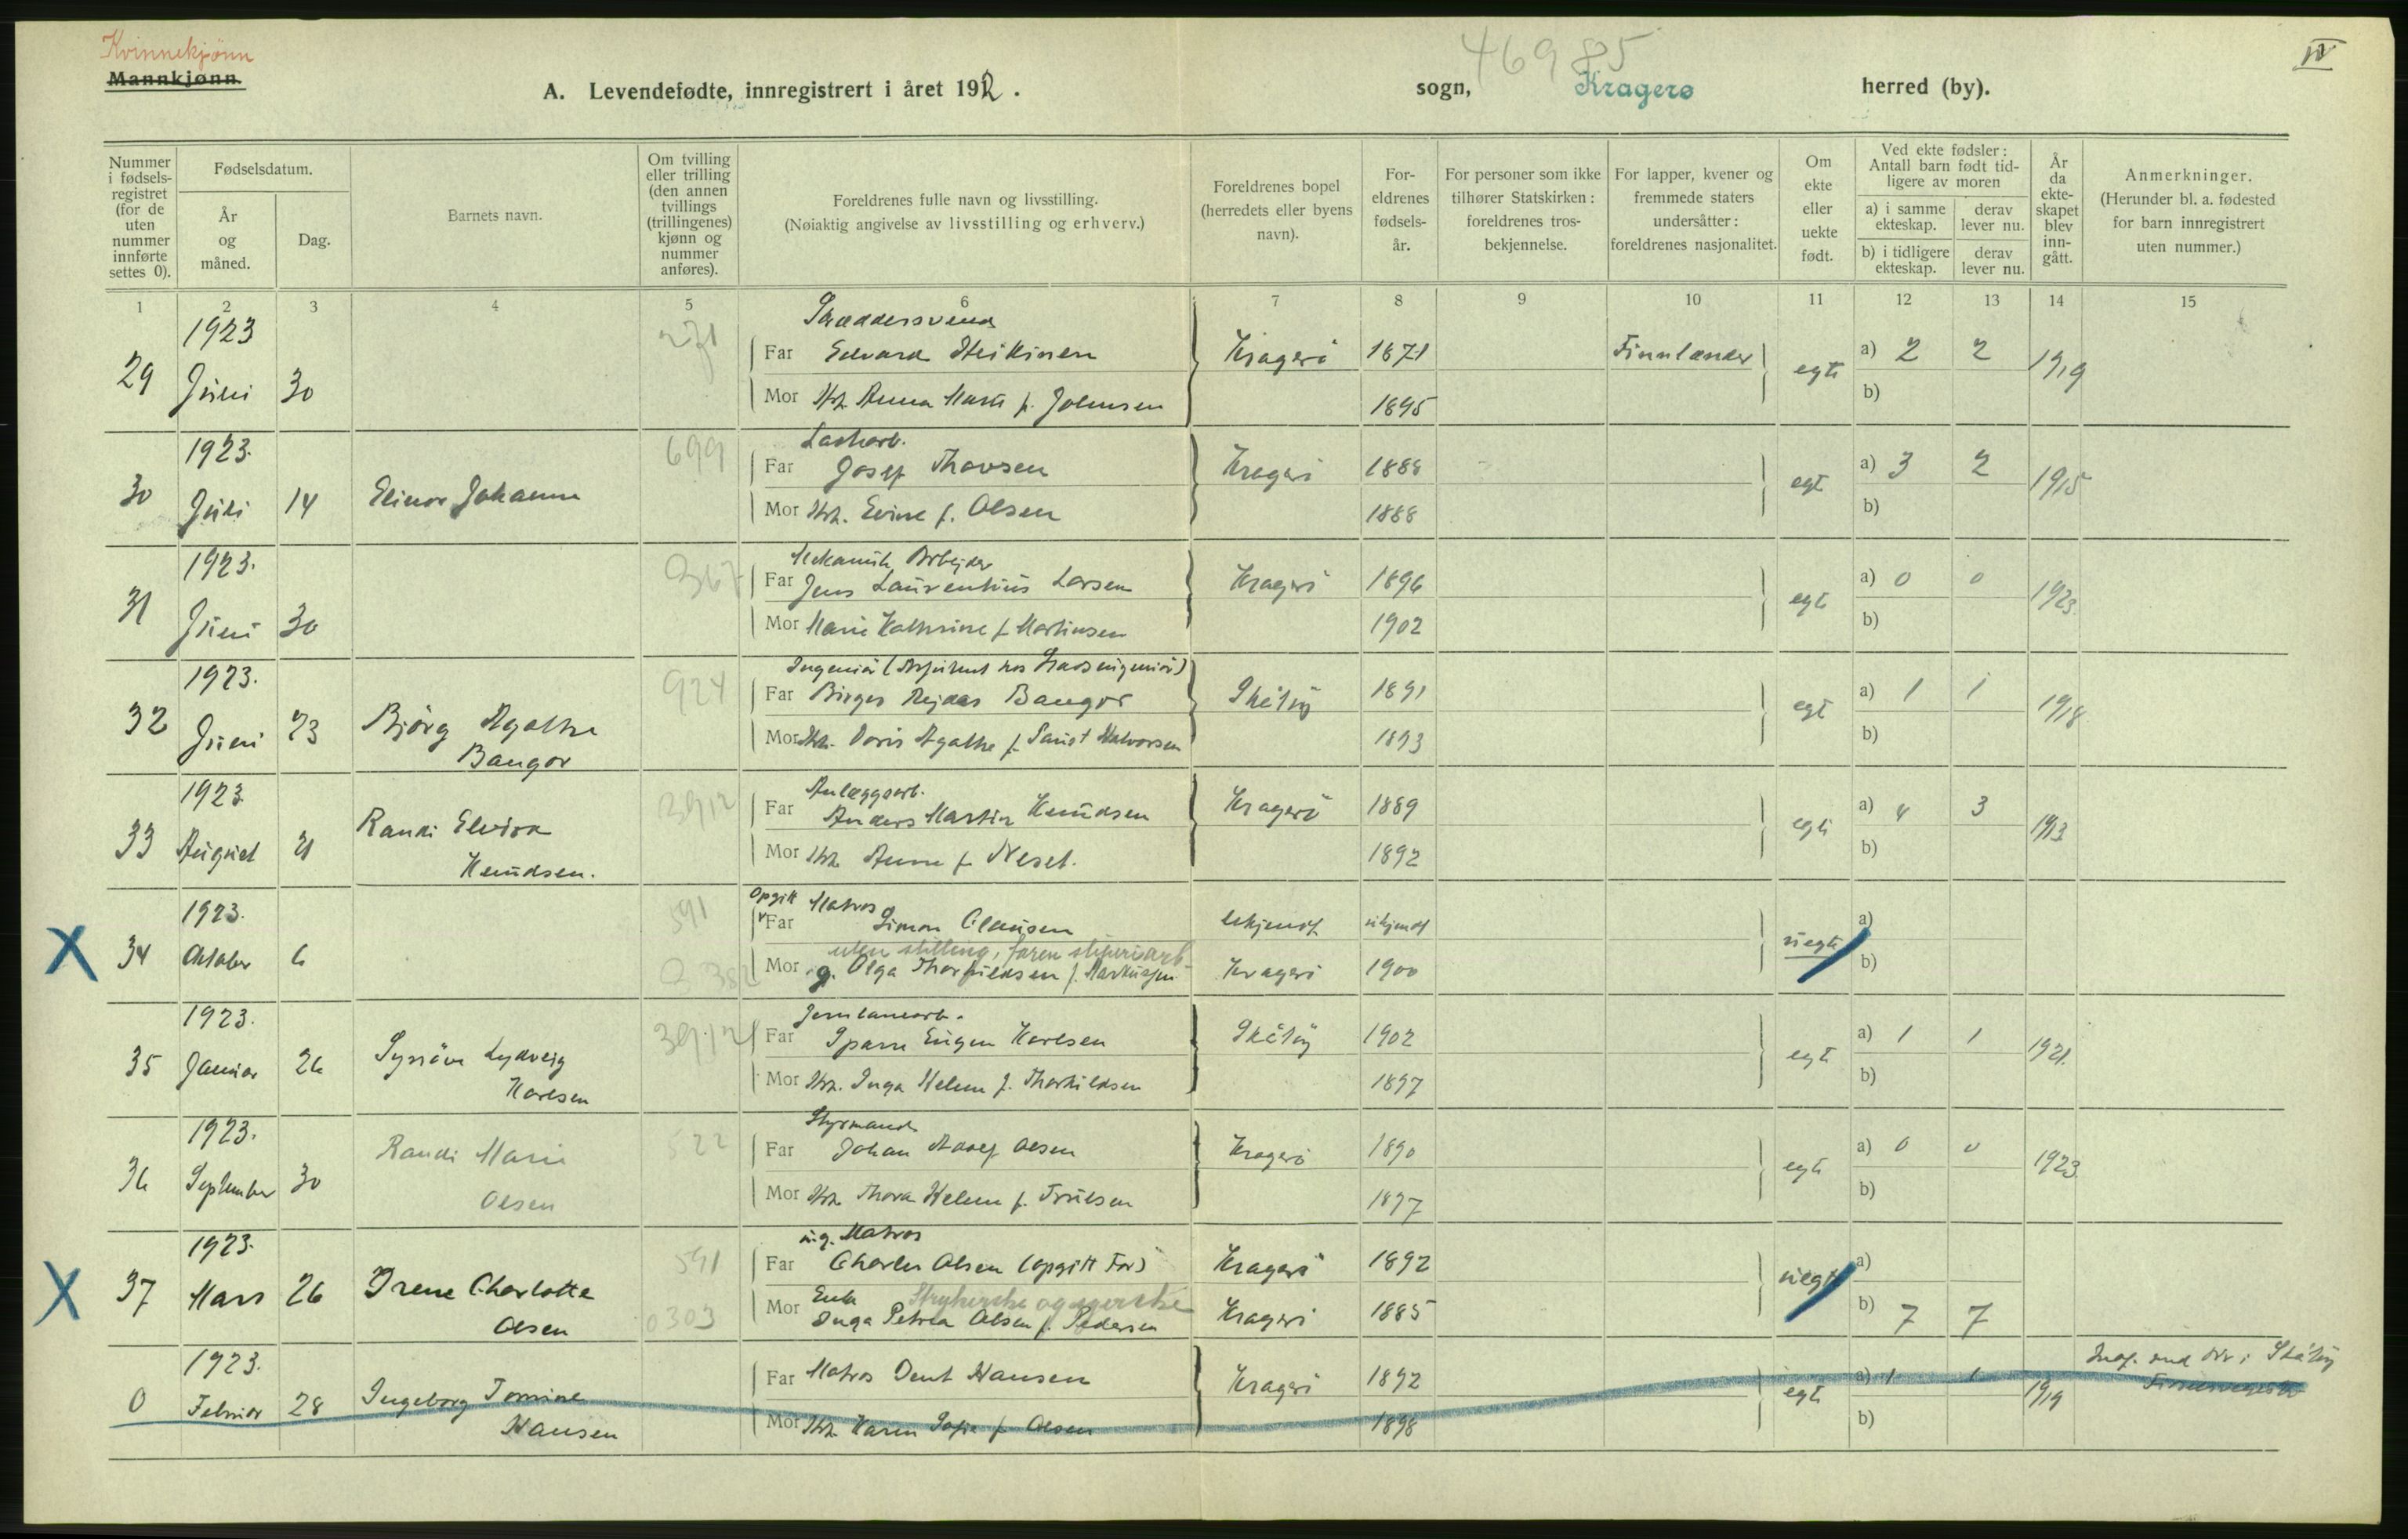 Kvinnekjønn
Mannkjønn
A. Levendefødte, innregistrert i året 192 .
sogn,
46985
Kragerø
herred (by).
IV
Nummer i fødsels-registret (for de uten nummer innførte settes 0).
Fødselsdatum.
År og måned.
Dag.
Barnets navn.
Om tvilling eller trilling (den annen tvillings (trillingenes) kjønn og nummer anføres).
Foreldrenes fulle navn og livsstilling.
(Nøiaktig angivelse av livsstilling og erhverv.)
Foreldrenes bopel (herredets eller byens navn).
For-eldrenes fødsels-år.
For personer som ikke tilhører Statskirken: foreldrenes tros-bekjennelse.
For lapper, kvener og fremmede staters undersåtter: foreldrenes nasjonalitet.
Om ekte eller uekte født.
Ved ekte fødsler: Antall barn født tid-ligere av moren
a) i samme ekteskap.
derav lever nu.
b) i tidligere ekteskap.
derav lever nu.
År da ekte-skapet blev inn-gått.
Anmerkninger.
(Herunder bl. a. fødested for barn innregistrert uten nummer.)
1 2 3 4 5 6 7 8 9 10 11 12 13 14 15
1923 271 Skræddersvend
29 Juni 30 Far Edvard Heikinen Kragerö 1871 Finnlænder egte a) 2 2 1919
Mor Hr. Anna Marie f. Johnsen 1895 b)
1923. 699 Lastearb.
30 Juli 14 Elinor Johanne Far Josef Thovsen Kragerö 1888 egt a) 3 2 1915
Mor Hr. Evine f. Olsen 1888 b)
1923. 367 Mekanisk Arbejder
31 Juni 30 Far Jens Laurentius Larsen Kragerö 1896 egte a) 0 0 1923.
Mor Marie Kathrine f. Martinsen 1902 b)
1923. 924 Ingeniör
32 Juni 23 Bjørg Agathe Bangor Far Birger Bangor Skåtöy 1891 egt a) 1 1 1918
Mor Doris Agathe f. Halvorsen 1893 b)
1923. 3912 Anlægsarb.
33 August 21 Randi Elvira Knudsen. Far Anders Martin Knudsen Kragerö 1889 egte a) 4 3 1913
Mor Anne f. Neset. 1892 b)
1923. 591 Opgitt Matros
X 34 Oktober 6 Far Simon Clausen Ukjendt ukjendt uegte a)
uten stilling, faren stuperiarb
Mor g. Olga Thorkildsen f. Markussen Kragerö 1900 b)
1923. 3912 Jernbanearb.
35 Januar 26 Synnöve Lydveig Karlsen Far Eugen Karlsen Skåtöy 1902 egte a) 1 1 1921.
Mor Inga Helene f. Thorkildsen 1897 b)
1923. 522 Styrmand
36 September 30 Randi Marie Olsen Far Johan Adolf Olsen Kragerö 1890 egte a) 0 0 1923
Mor Thora Helene f. Truelsen 1897 b)
1923. 591 ug. Matros
X 37 Mars 26 Irene Charlotte Olsen Far Charles Olsen (opgitt Far) Kragerö 1892 uegte a)
0303 Mor Enke Strykerske og syerske
Inga Petrea Olsen f. Pedersen Kragerö 1885 b) 7 7
1923.
0 Februar 28 Ingeborg Tomine Hansen Far Matros Hansen Kragerö 1892 egte a) 1 1 1919 Skåtöy
Mor Karen Sofie f. Olsen 1898 b)